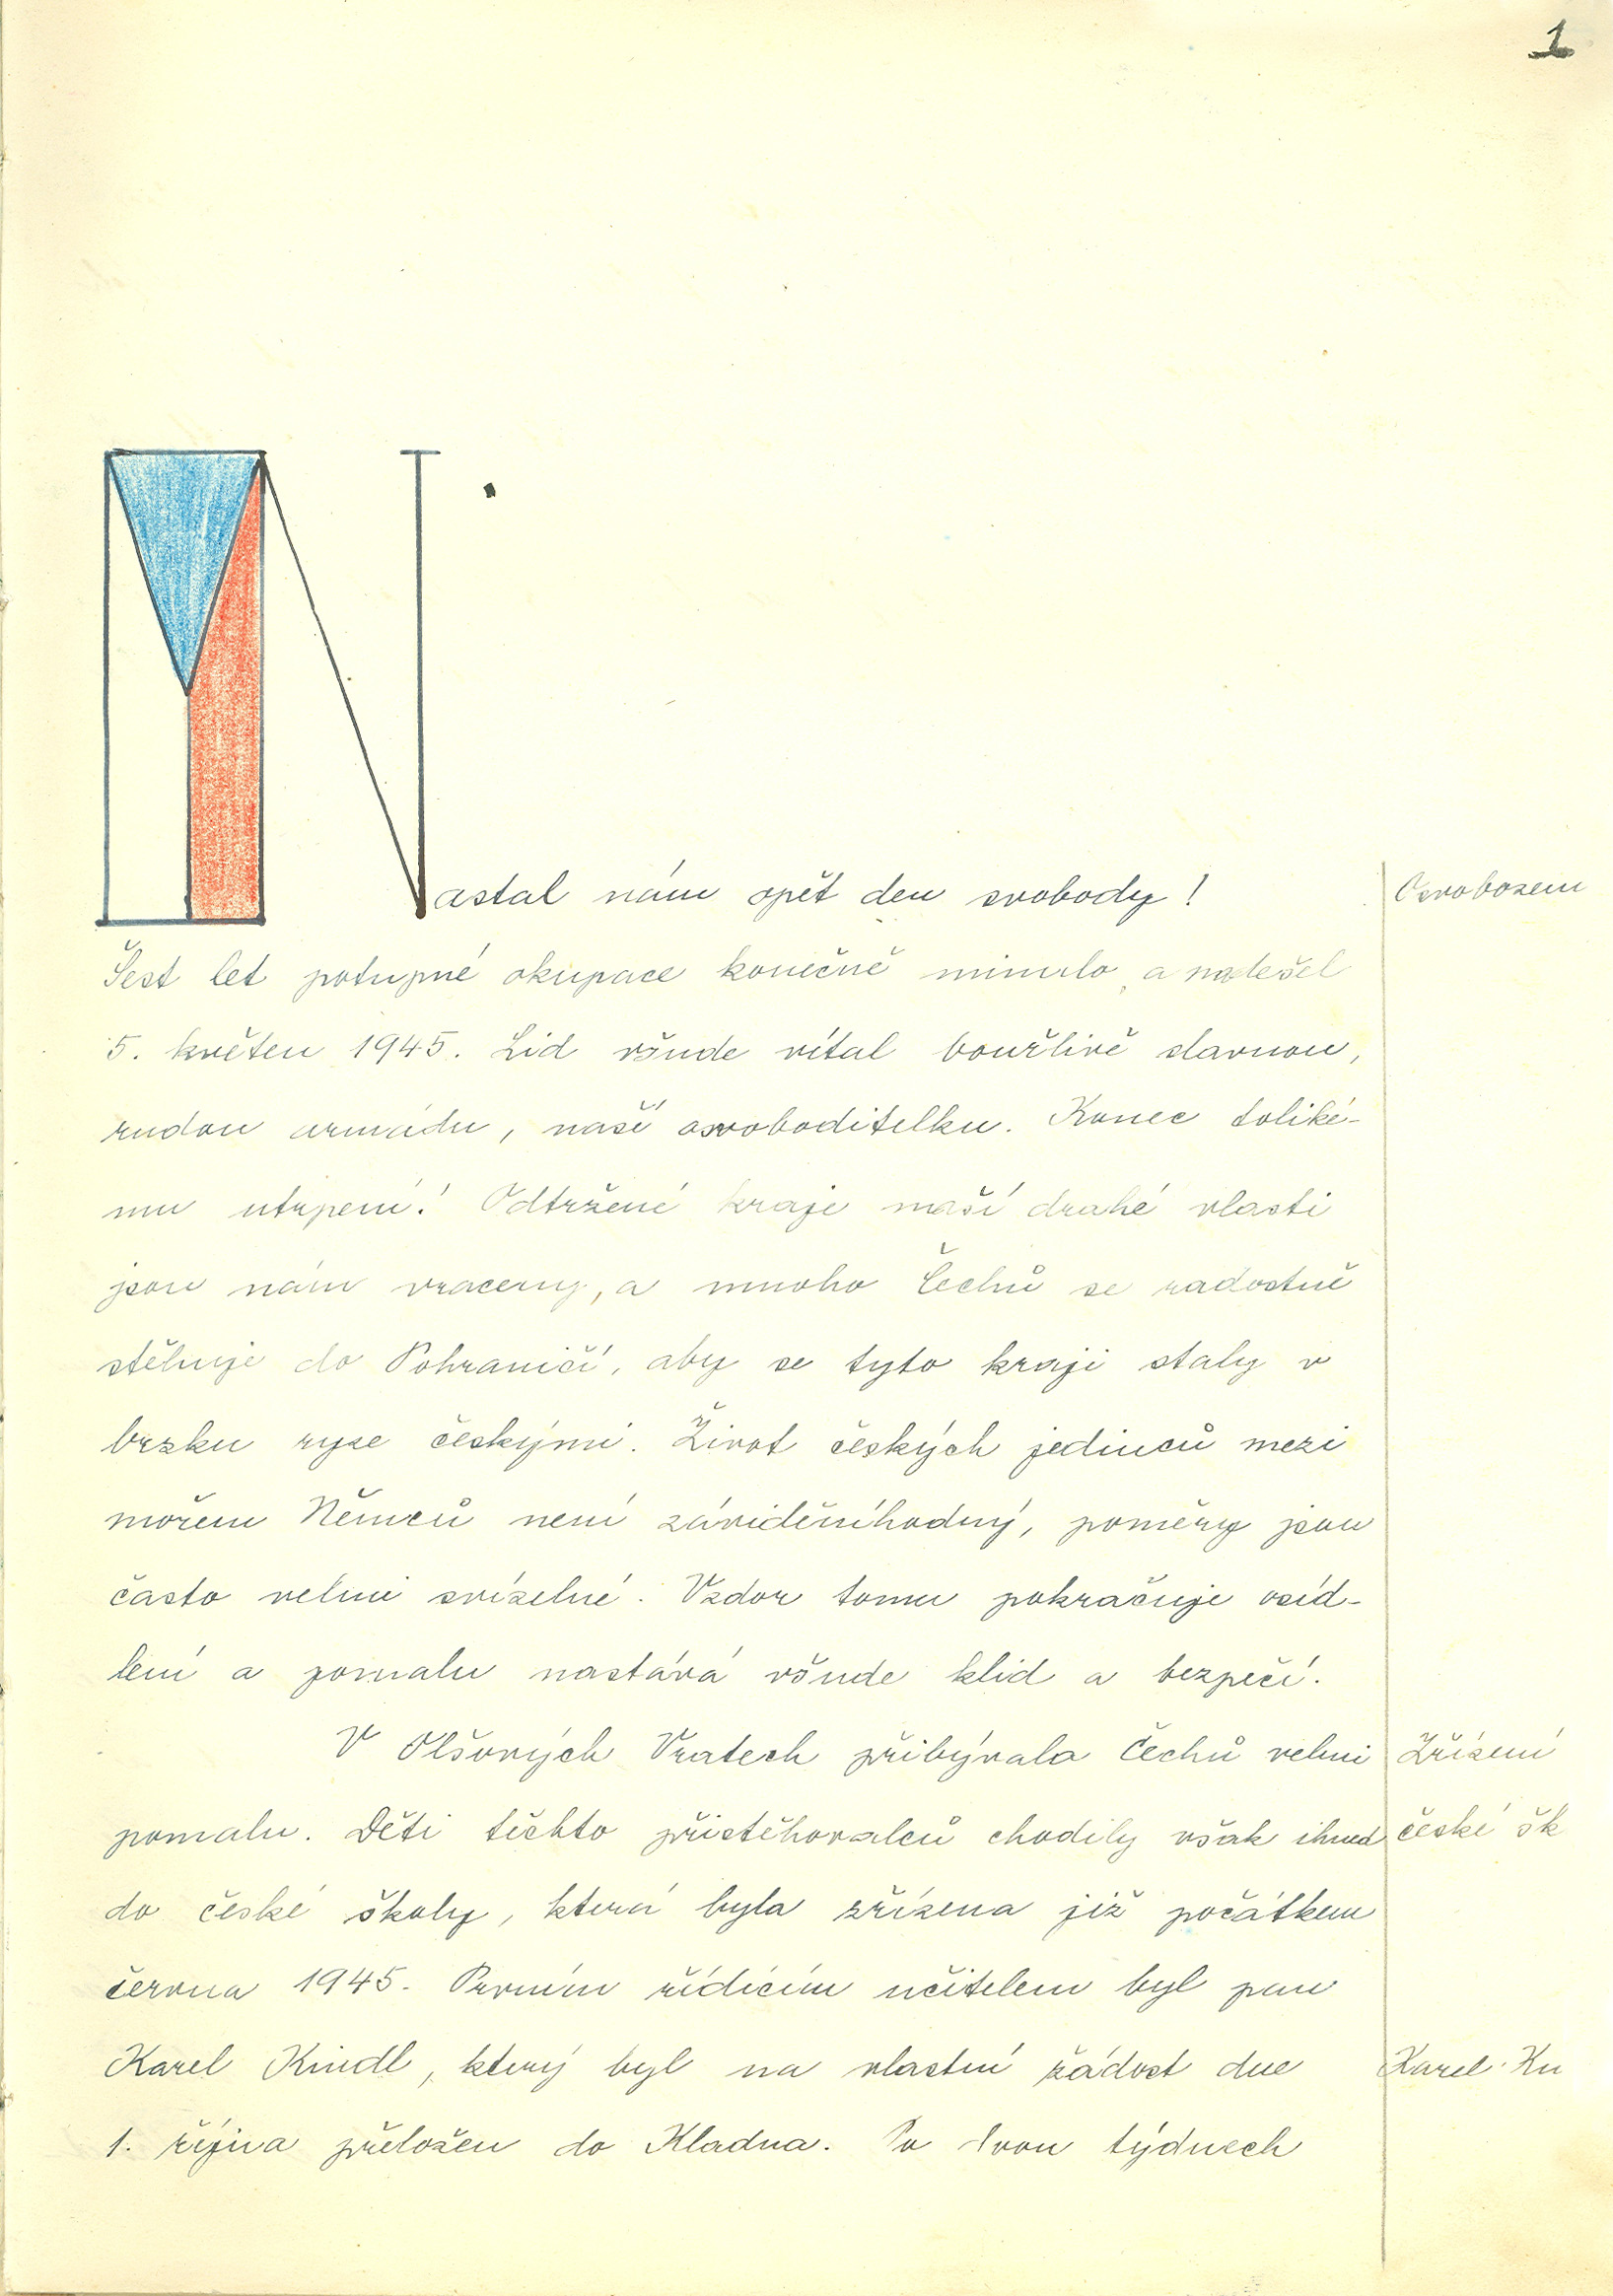 1
Nastal nám opět den svobody! Osvobození
Šest let potupné okupace konečně minulo, a nadešel
5. květen 1945. Lid všude vítal bouřlivě slavnou,
rudou armádu, naší osvoboditelku. Konec toliké-
mu utrpení! Odtržené kraje naší drahé vlasti
jsou nám vraceny, a mnoho Čechů se radostně
stěhuje do Pohraničí, aby se tyto kraji staly v
brzku ryze českými. Život českých jedinců mezi
mořem Němců není záviděníhodný, poměry jsou
často velmi svízelné. Vzdor tomu pokračuje osíd-
lení a pomalu nastává všude klid a bezpečí.
V Olšových Vratech přibývala Čechů velmi Zřízení
pomalu. Děti těchto přistěhovalců chodily však ihned české šk
do české školy, která byla zřízena již počátkem
června 1945. Prvním řídícím učitelem byl pan
Karel Kindl, který byl na vlastní žádost dne Karel Kin
1. října přeložen do Kladna. Po dvou týdnech